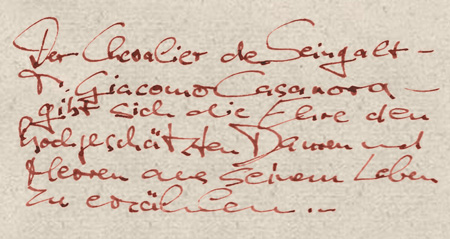 Der Chevalier de Seingalt –
Giacomo Casanova –
gibt sich die Ehre den
Hochgeschätzten Damen und
Herren aus seinem Leben
zu erzählen...